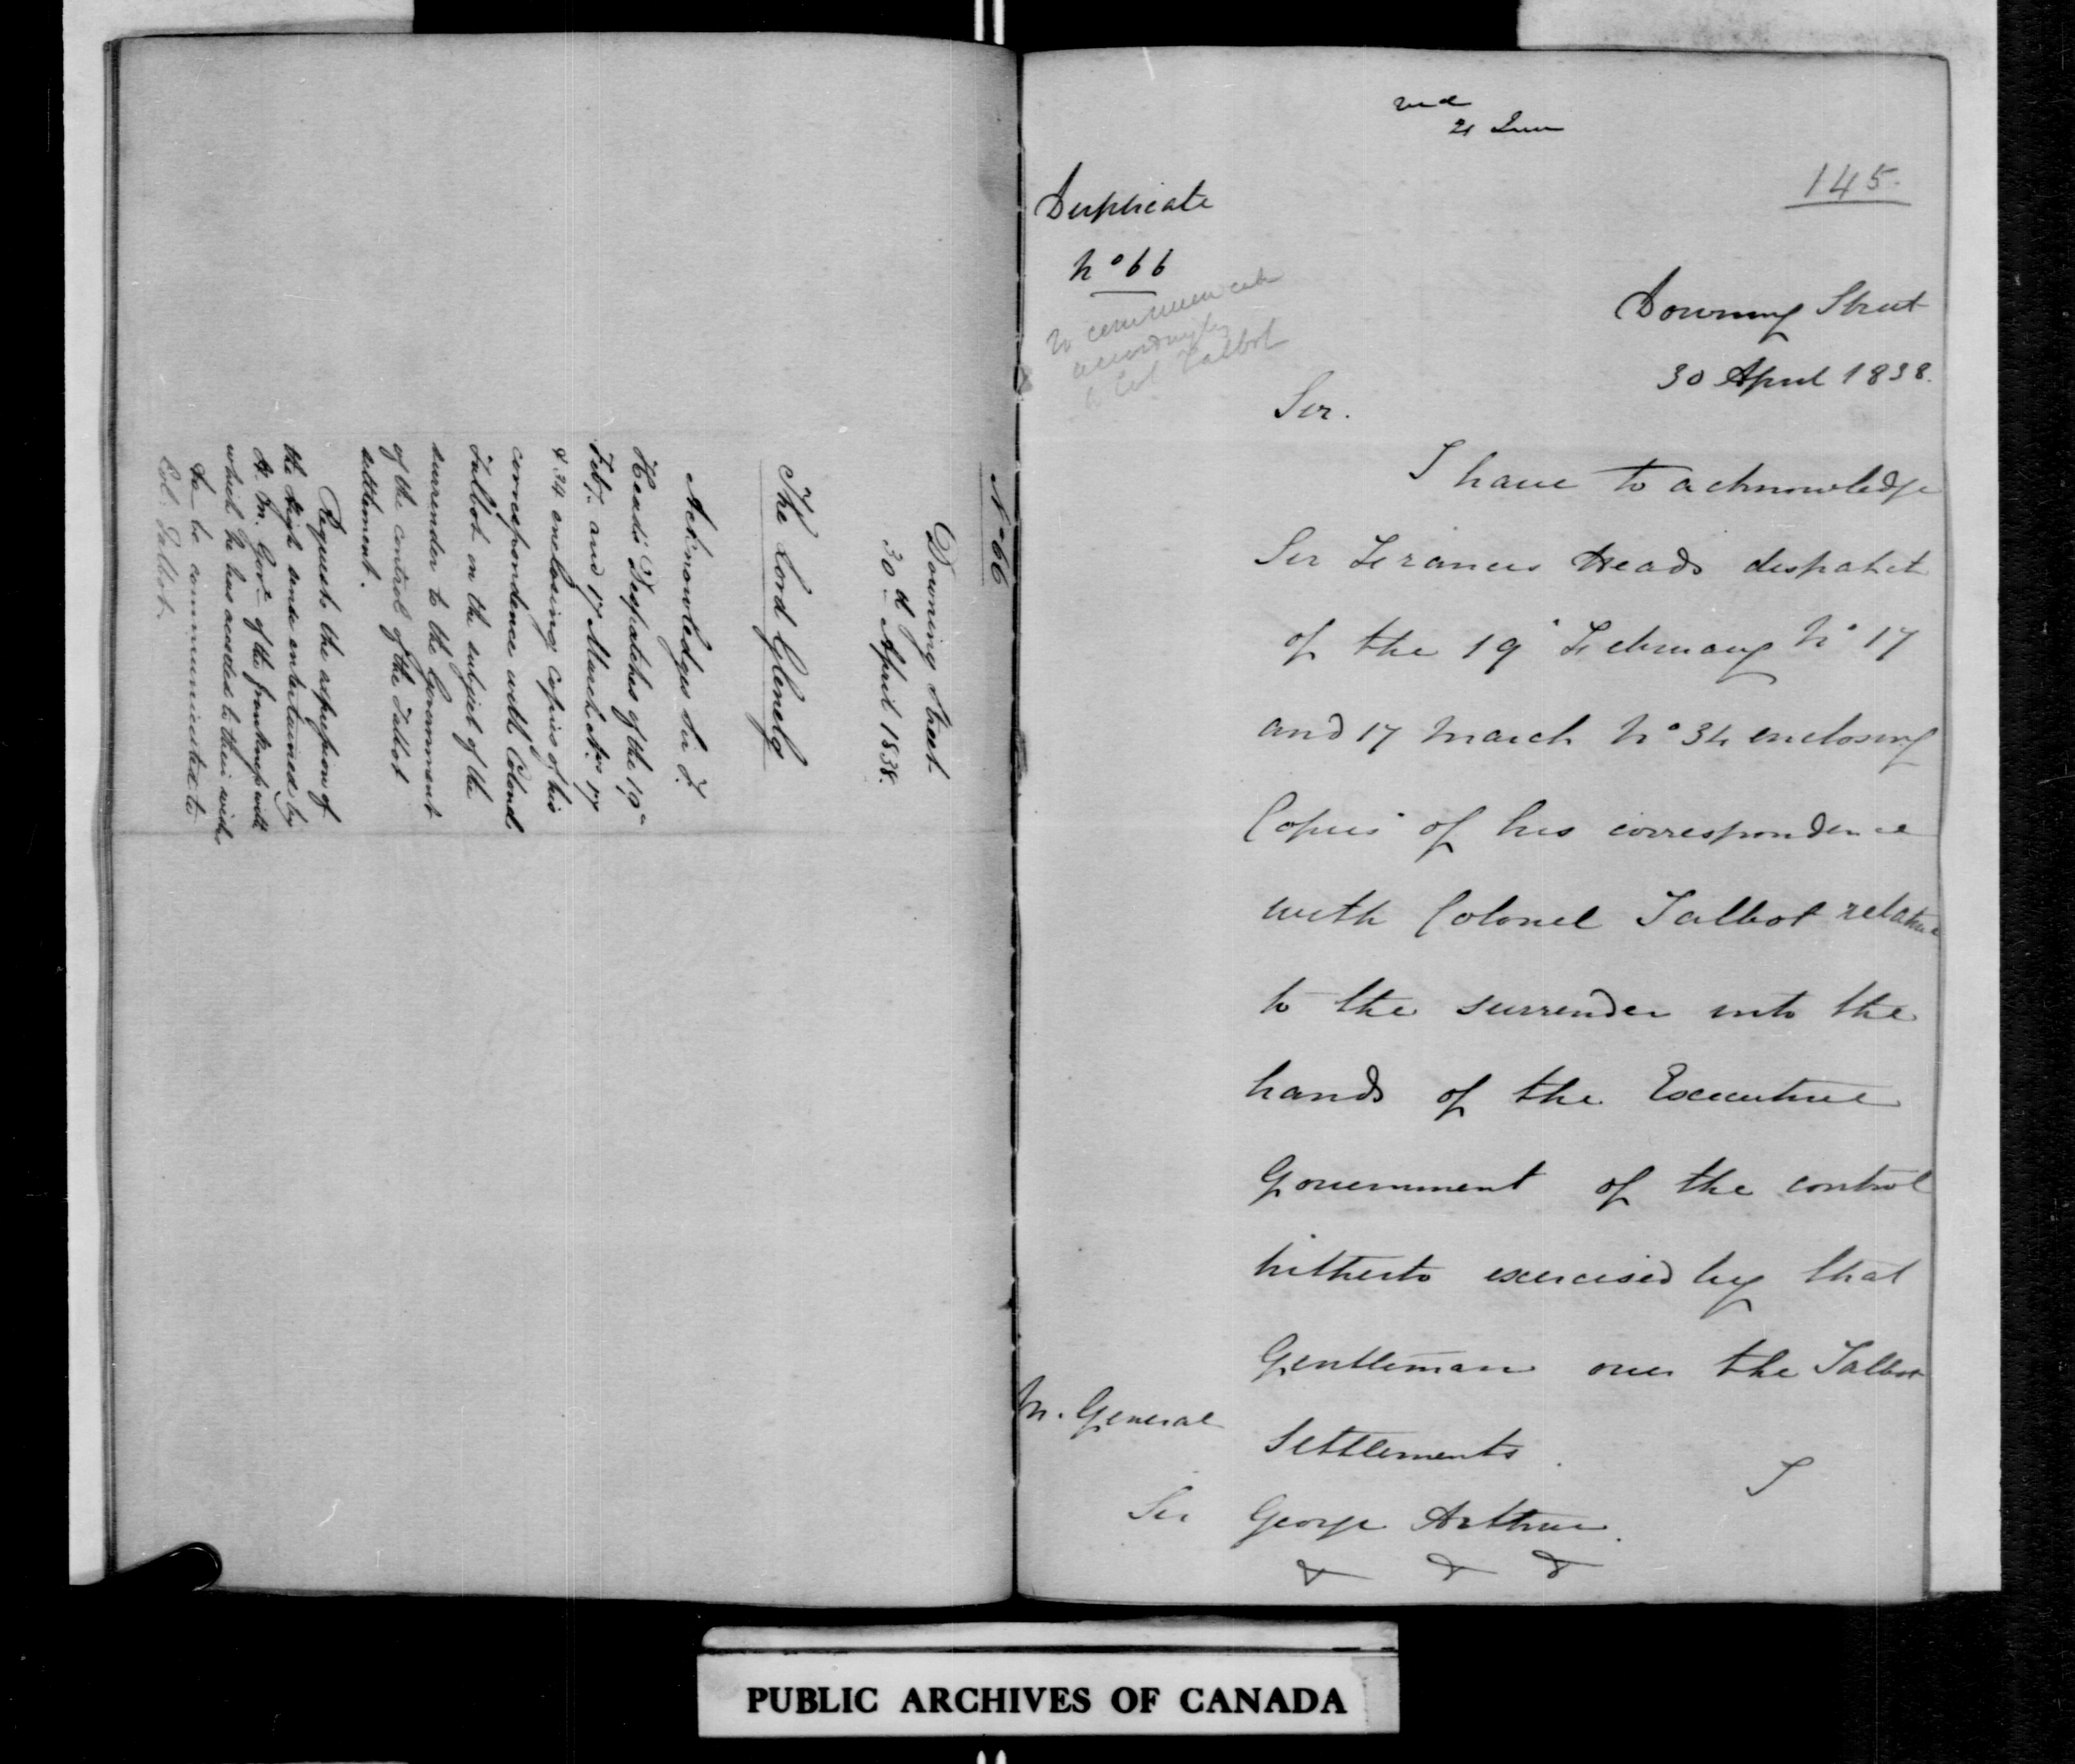 No 66
Downing Street
30th April 1838.
The Lord Glenelg
Acknowledges Sir F.
Head's Despatches of the 19th
Feby. and 17 March Nos 17
& 34 enclosing copies of his
correspondence with Colonel
Talbot on the subject of the
surrender to the Government
of the control of the Talbot
settlement.
Requests the expression of
the high sense entertained by
H. M. Govt of the promptness with
which he has acceded to their wishes
To be communicated to
Col. Talbot.
21 June
145.
Duplicate
No 66
To communicate
accordingly
to Col Talbot
Downing Street
30 April 1838.
Sir.
I have to acknowledge
Sir Francis Heads despatch
of the 19 February No 17
and 17 March No 34 enclosing
Copies of his correspondence
with Colonel Talbot relative
to the surrender into the
hands of the Executive
Government of the control
hitherto exercised by that
Gentleman over the Talbot
Settlements.
I
M. General
Sir George Arthur.
& & &
PUBLIC ARCHIVES OF CANADA